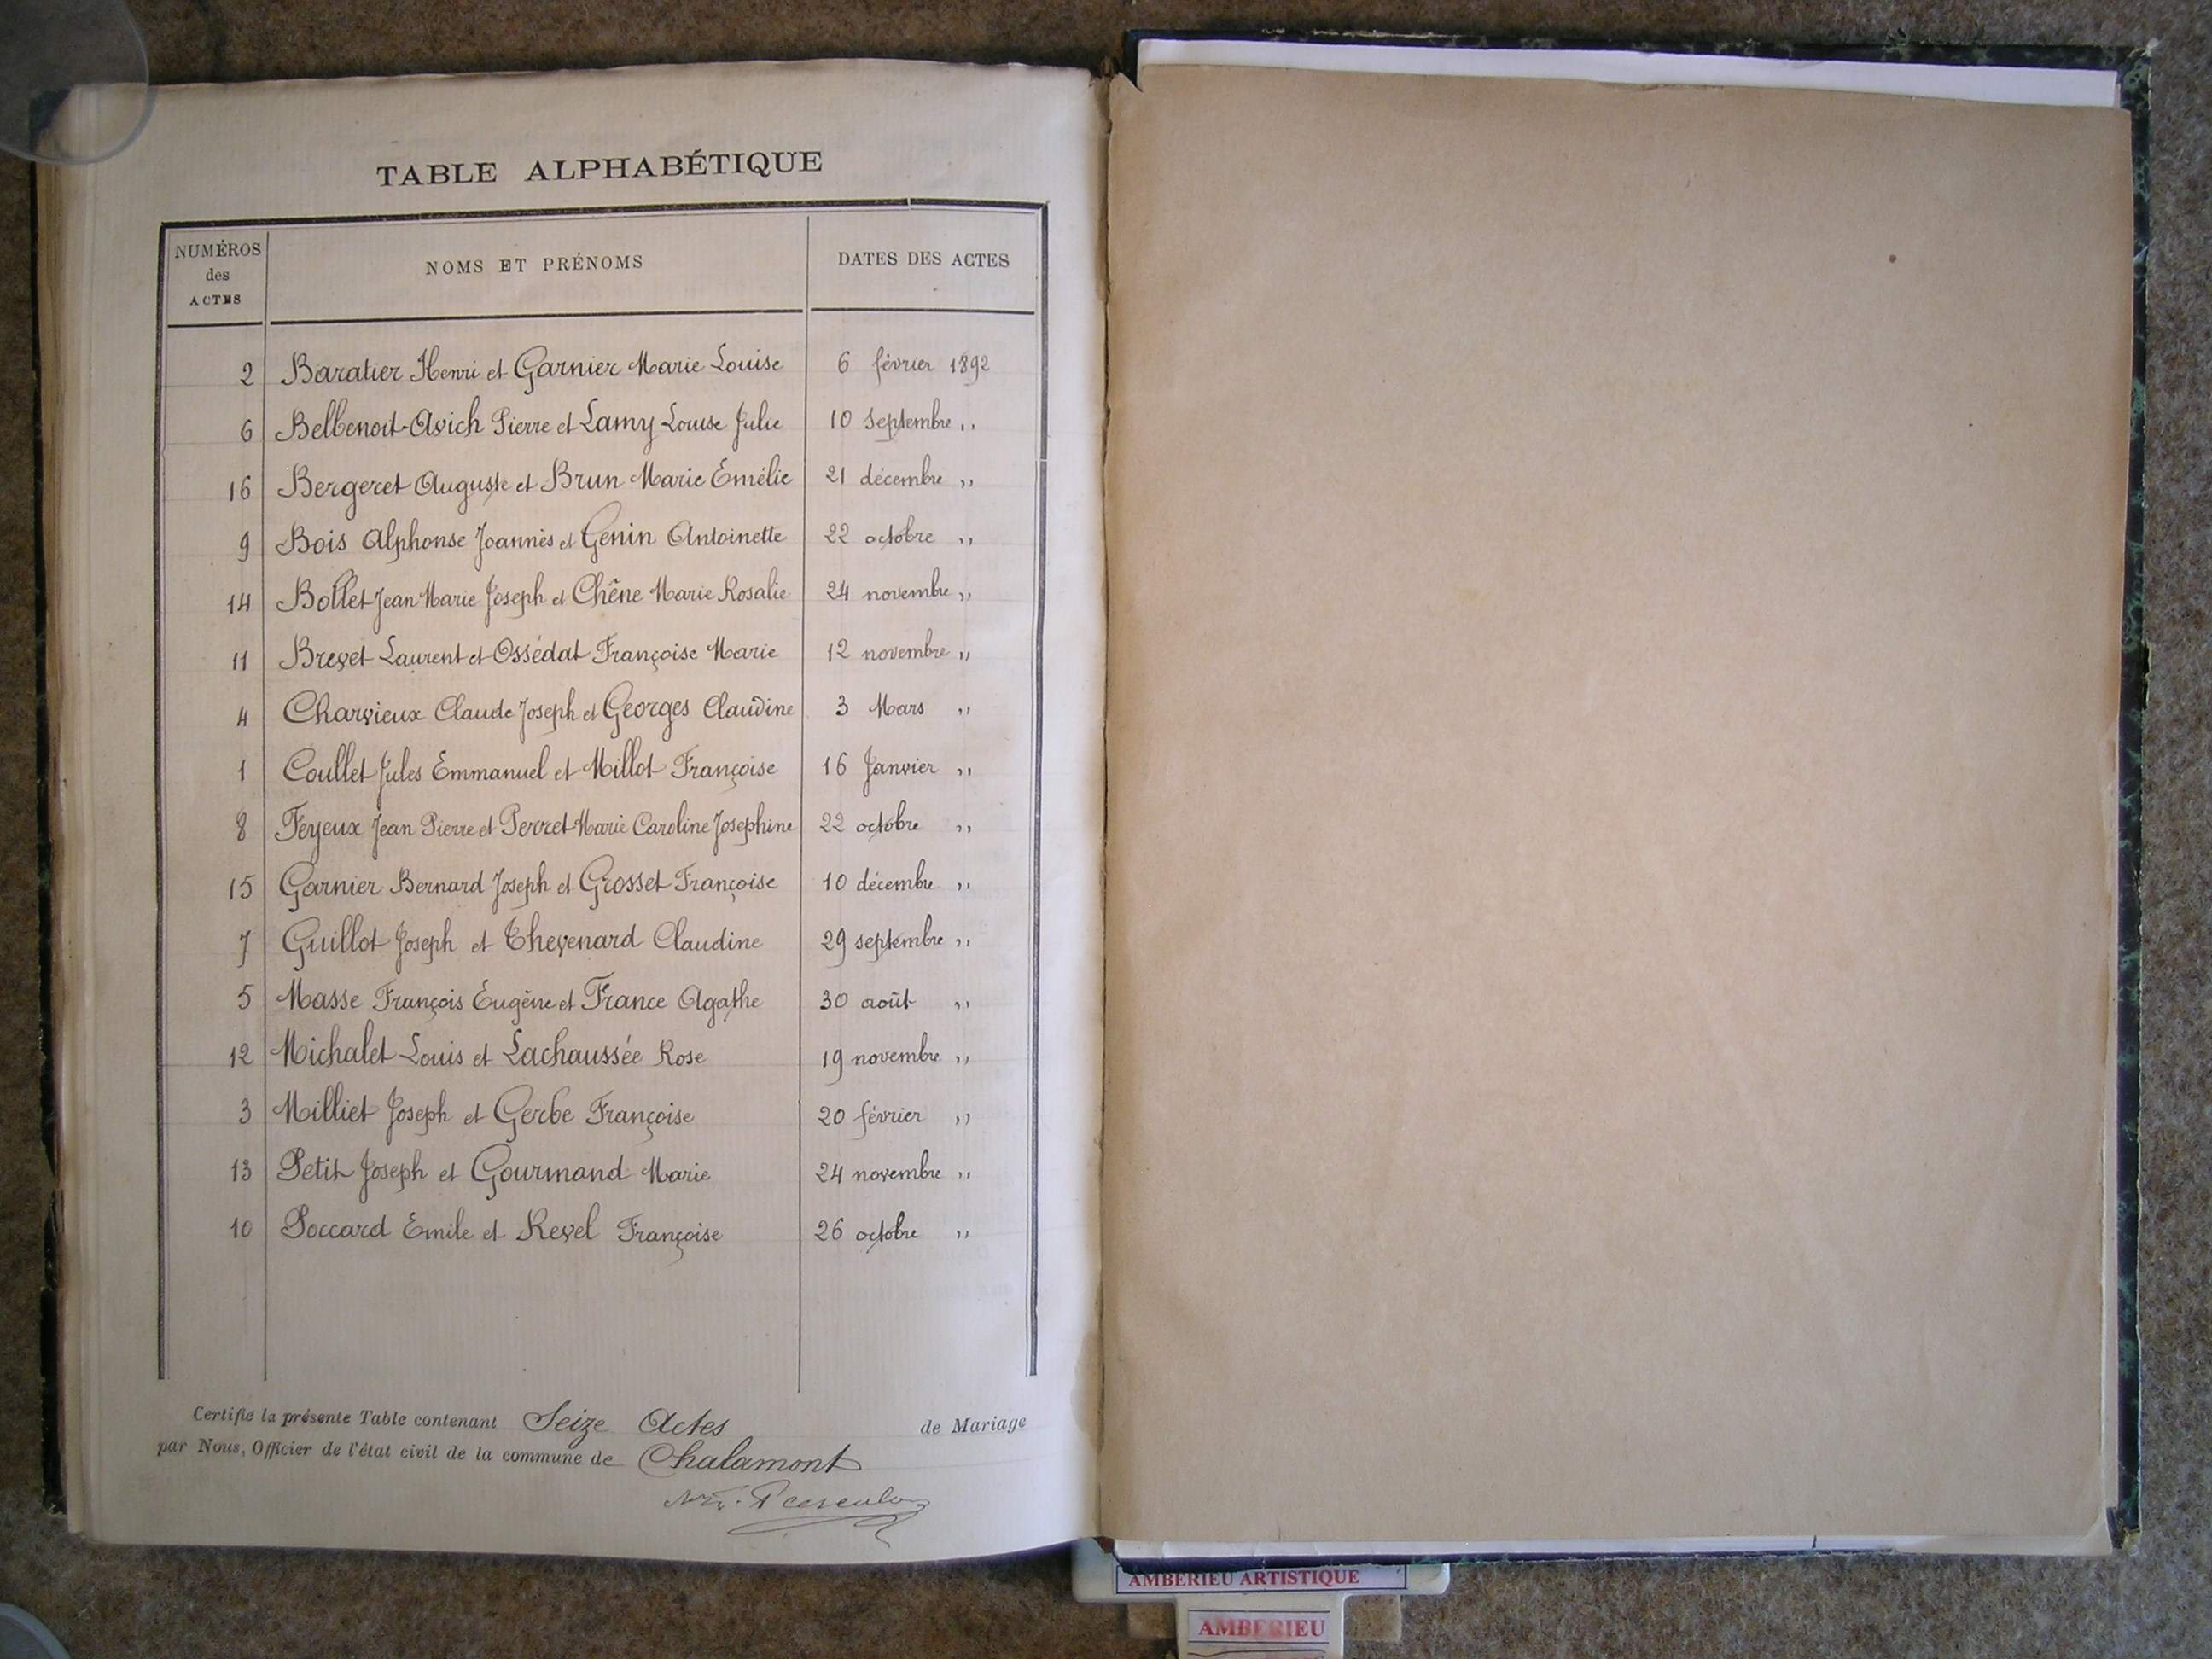 TABLE ALPHABÉTIQUE
NUMÉROS des ACTES NOMS ET PRÉNOMS DATES DES ACTES
2 Baratier Henri et Garnier Marie Louise 6 février 1892
6 Belbenoit-Avich Pierre et Lamy Louise Julie 10 Septembre ,,
16 Bergeret Auguste et Brun Marie Emélie 21 décembre ,,
9 Bois Alphonse Joannès et Genin Antoinette 22 octobre ,,
14 Bollet Jean Marie Joseph et Chêne Marie Rosalie 24 novembre ,,
11 Brevet Laurent et Ossédat Françoise Marie 12 novembre ,,
4 Charvieux Claude Joseph et Georges Claudine 3 Mars ,,
1 Coullet Jules Emmanuel et Millot Françoise 16 Janvier ,,
8 Feyeux Jean Pierre et Perret Marie Caroline Josephine 22 octobre ,,
15 Garnier Bernard Joseph et Grosset Françoise 10 décembre ,,
7 Guillot Joseph et Thevenard Claudine 29 septembre ,,
5 Masse François Eugène et France Agathe 30 août ,,
12 Michalet Louis et Lachaussée Rose 19 novembre ,,
3 Milliet Joseph et Gerbe Françoise 20 février ,,
13 Petit Joseph et Gourmand Marie 24 novembre ,,
10 Poccard Emile et Revel Françoise 26 octobre ,,
Certifie la présente Table contenant Seize Actes de Mariage
par Nous, Officier de l'état civil de la commune de Chalamont
AMBERIEU ARTISTIQUE
AMBERIEU